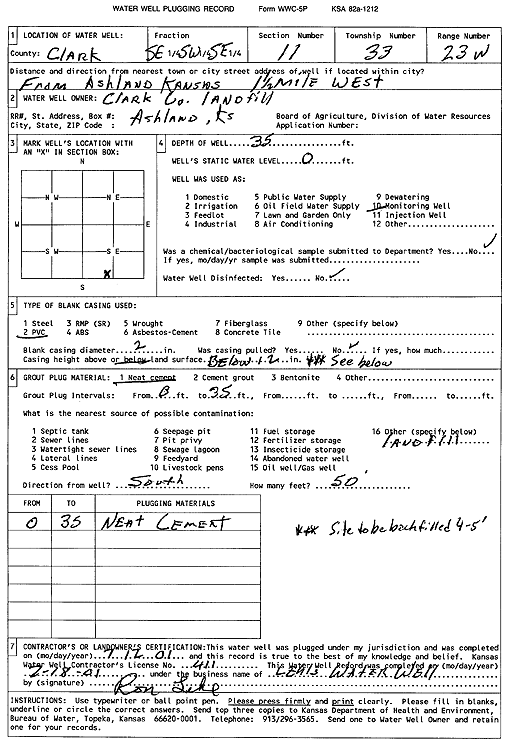 WATER WELL PLUGGING RECORD Form WWC-5P KSA 82a-1212
1 LOCATION OF WATER WELL: Fraction Section Number Township Number Range Number
County: Clark SE 1/4 SW 1/4 SE 1/4 11 33 23 W
Distance and direction from nearest town or city street address of well if located within city?
From Ashland Kansas 1 1/2 Mile West
2 WATER WELL OWNER: Clark Co. landfill
RR#, St. Address, Box #: Ashland, Ks Board of Agriculture, Division of Water Resources
City, State, ZIP Code : Application Number:
3 MARK WELL'S LOCATION WITH AN "X" IN SECTION BOX:
N
N W N E
W E
S W S E
X
S
4 DEPTH OF WELL.....35.....ft.
WELL'S STATIC WATER LEVEL....0....ft.
WELL WAS USED AS:
1 Domestic 5 Public Water Supply 9 Dewatering
2 Irrigation 6 Oil Field Water Supply 10 Monitoring Well
3 Feedlot 7 Lawn and Garden Only 11 Injection Well
4 Industrial 8 Air Conditioning 12 Other...........
Was a chemical/bacteriological sample submitted to Department? Yes....No.✓
If yes, mo/day/yr sample was submitted..............
Water Well Disinfected: Yes...... No.✓
5 TYPE OF BLANK CASING USED:
1 Steel 3 RMP (SR) 5 Wrought 7 Fiberglass 9 Other (specify below)
2 PVC 4 ABS 6 Asbestos-Cement 8 Concrete Tile ..........................
Blank casing diameter.....2.....in. Was casing pulled? Yes..... No.✓.. If yes, how much.........
Casing height above or below land surface. Below 12 in. *** See below
6 GROUT PLUG MATERIAL: 1 Neat cement 2 Cement grout 3 Bentonite 4 Other...............
Grout Plug Intervals: From..0..ft. to..35..ft., From......ft. to ......ft., From...... to......ft.
What is the nearest source of possible contamination:
1 Septic tank 6 Seepage pit 11 Fuel storage 16 Other (specify below)
2 Sewer lines 7 Pit privy 12 Fertilizer storage landfill
3 Watertight sewer lines 8 Sewage lagoon 13 Insecticide storage
4 Lateral lines 9 Feedyard 14 Abandoned water well
5 Cess Pool 10 Livestock pens 15 Oil well/Gas well
Direction from well? ...South............ How many feet? ....50..............
FROM TO PLUGGING MATERIALS
0 35 Neat Cement
*** Site to be backfilled 4-5'
7 CONTRACTOR'S OR LANDOWNER'S CERTIFICATION: This water well was plugged under my jurisdiction and was completed
on (mo/day/year) and this record is true to the best of my knowledge and belief. Kansas
Water Well Contractor's License No. ..411......... This Water Well Record was completed on (mo/day/year)
under the business name of Water Well
by (signature) Ron
INSTRUCTIONS: Use typewriter or ball point pen. Please press firmly and print clearly. Please fill in blanks,
underline or circle the correct answers. Send top three copies to Kansas Department of Health and Environment,
Bureau of Water, Topeka, Kansas 66620-0001. Telephone: 913/296-3565. Send one to Water Well Owner and retain
one for your records.